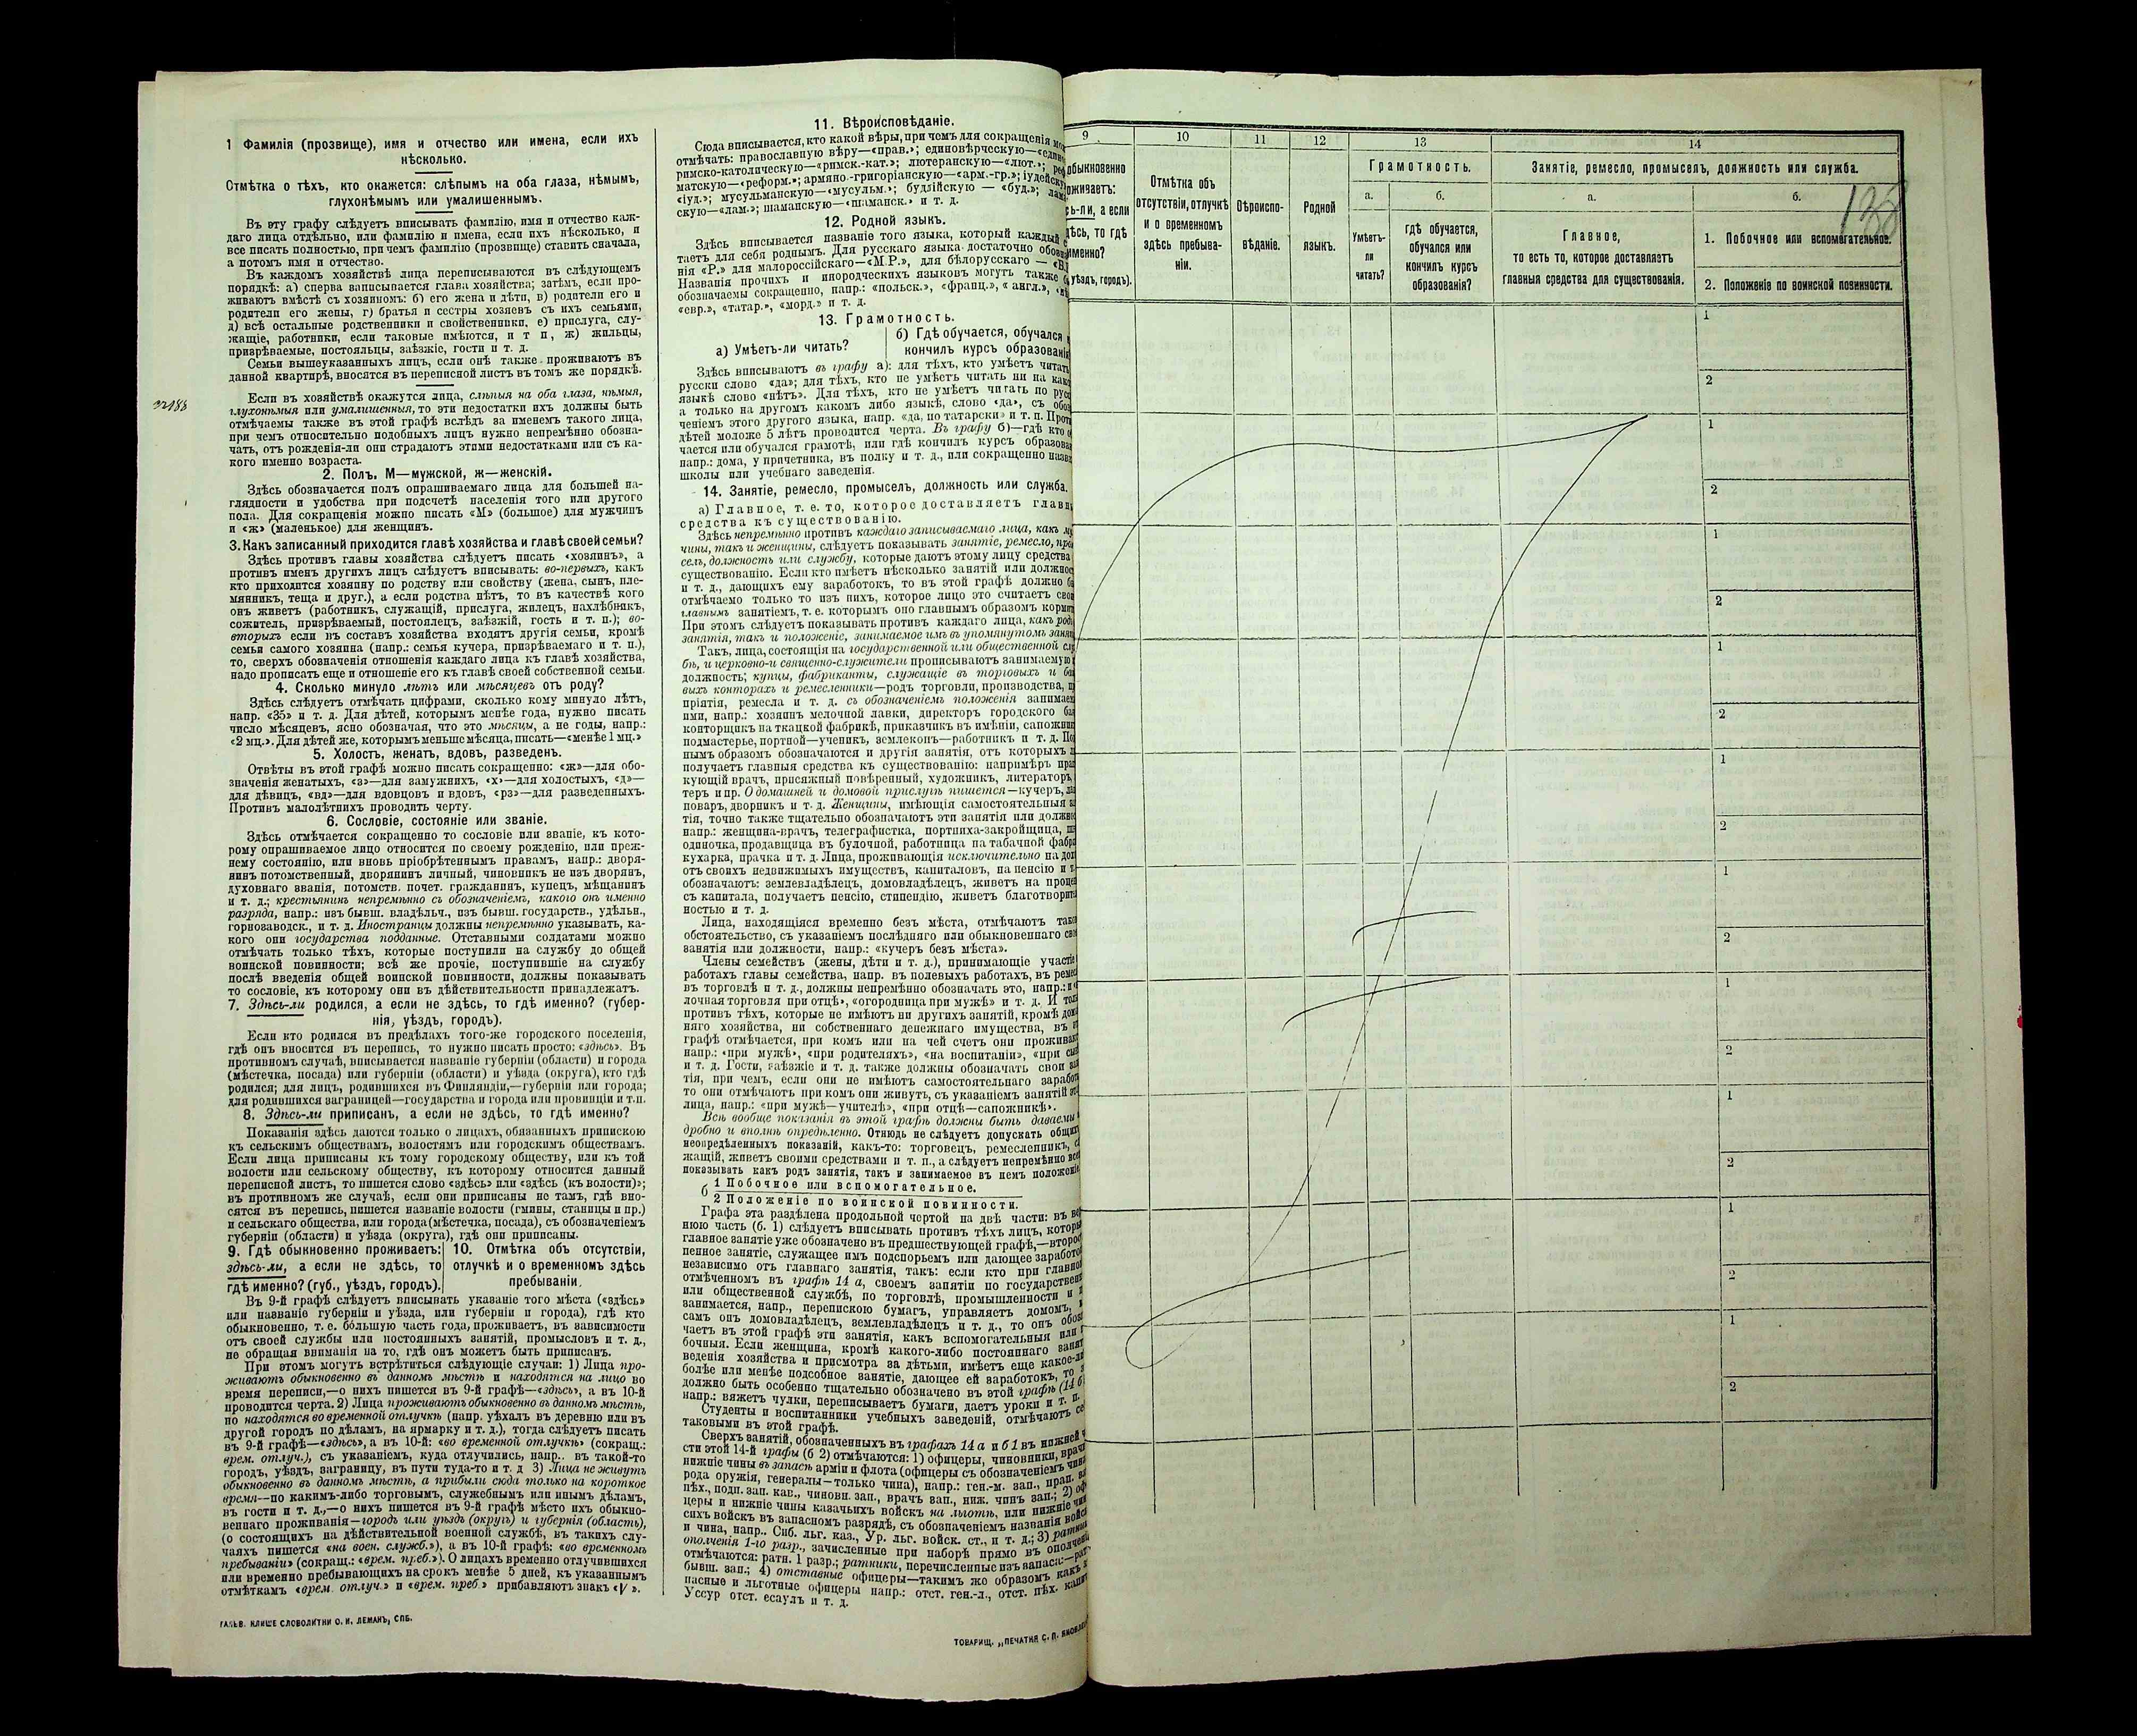 1 Фамилія (прозвище), имя и отчество или имена, если ихъ
нѣсколько.
Отмѣтка о тѣхъ, кто окажется: слѣпымъ на оба глаза, нѣмымъ,
глухонѣмымъ или умалишеннымъ.
Въ эту графу слѣдуетъ вписывать фамилію, имя и отчество каж-
даго лица отдѣльно, или фамилію и имена, если ихъ нѣсколько, и
все писать полностью, при чемъ фамилію (прозвище) ставить сначала,
а потомъ имя и отчество.
Въ каждомъ хозяйствѣ лица переписываются въ слѣдующемъ
порядкѣ: а) сперва вписывается глава хозяйства; затѣмъ, если про-
живаютъ вмѣстѣ съ хозяиномъ: б) его жена и дѣти, в) родители его и
родители его жены, г) братья и сестры хозяевъ съ ихъ семьями,
д) всѣ остальные родственники и свойственники, е) прислуга, слу-
жащіе, работники, если таковые имѣются, и т п, ж) жильцы,
призрѣваемые, постояльцы, заѣзжіе, гости и т. д.
Семьи вышеуказанныхъ лицъ, если онѣ также проживаютъ въ
данной квартирѣ, вносятся въ переписной листъ въ томъ же порядкѣ.
Если въ хозяйствѣ окажутся лица, слѣпыя на оба глаза, нѣмыя,
глухонѣмыя или умалишенныя, то эти недостатки ихъ должны быть
отмѣчаемы также въ этой графѣ вслѣдъ за именемъ такого лица,
при чемъ относительно подобныхъ лицъ нужно непремѣнно обозна-
чать, отъ рожденія-ли они страдаютъ этими недостатками или съ ка-
кого именно возраста.
2. Полъ. М—мужской, ж—женскій.
Здѣсь обозначается полъ опрашиваемаго лица для большей на-
глядности и удобства при подсчетѣ населенія того или другого
пола. Для сокращенія можно писать «М» (большое) для мужчинъ
и «ж» (маленькое) для женщинъ.
3. Какъ записанный приходится главѣ хозяйства и главѣ своей семьи?
Здѣсь противъ главы хозяйства слѣдуетъ писать «хозяинъ», а
противъ именъ другихъ лицъ слѣдуетъ вписывать: во-первыхъ, какъ
кто приходится хозяину по родству или свойству (жена, сынъ, пле-
мянникъ, теща и друг.), а если родства нѣтъ, то въ качествѣ кого
онъ живетъ (работникъ, служащій, прислуга, жилецъ, нахлѣбникъ,
сожитель, призрѣваемый, постоялецъ, заѣзжій, гость и т. п.); во-
вторыхъ если въ составъ хозяйства входятъ другія семьи, кромѣ
семьи самого хозяина (напр.: семья кучера, призрѣваемаго и т. п.),
то, сверхъ обозначенія отношенія каждаго лица къ главѣ хозяйства,
надо прописать еще и отношеніе его къ главѣ своей собственной семьи.
4. Сколько минуло лѣтъ или мѣсяцевъ отъ роду?
Здѣсь слѣдуетъ отмѣчать цифрами, сколько кому минуло лѣтъ,
напр. «35» и т. д. Для дѣтей, которымъ менѣе года, нужно писать
число мѣсяцевъ, ясно обозначая, что это мѣсяцы, а не годы, напр.:
«2 мц.». Для дѣтей же, которымъ меньше мѣсяца, писать—«менѣе 1 мц.»
5. Холостъ, женатъ, вдовъ, разведенъ.
Отвѣты въ этой графѣ можно писать сокращенно: «ж»—для обо-
значенія женатыхъ, «з»—для замужнихъ, «х»—для холостыхъ, «д»—
для дѣвицъ, «вд»—для вдовцовъ и вдовъ, «рз»—для разведенныхъ.
Противъ малолѣтнихъ проводить черту.
6. Сословіе, состояніе или званіе.
Здѣсь отмѣчается сокращенно то сословіе или званіе, къ кото-
рому опрашиваемое лицо относится по своему рожденію, или преж-
нему состоянію, или вновь пріобрѣтеннымъ правамъ, напр.: дворя-
нинъ потомственный, дворянинъ личный, чиновникъ не изъ дворянъ,
духовнаго званія, потомств. почет. гражданинъ, купецъ, мѣщанинъ
и т. д.; крестьянинъ непремѣнно съ обозначеніемъ, какого онъ именно
разряда, напр.: изъ бывш. владѣльч., изъ бывш. государств., удѣльн.,
горнозаводск., и т. д. Иностранцы должны непремѣнно указывать, ка-
кого они государства подданные. Отставными солдатами можно
отмѣчать только тѣхъ, которые поступили на службу до общей
воинской повинности; всѣ же прочіе, поступившіе на службу
послѣ введенія общей воинской повинности, должны показывать
то сословіе, къ которому они въ дѣйствительности принадлежатъ.
7. Здѣсь-ли родился, а если не здѣсь, то гдѣ именно? (губер-
нія, уѣздъ, городъ).
Если кто родился въ предѣлахъ того-же городского поселенія,
гдѣ онъ вносится въ перепись, то нужно писать просто: «здѣсь». Въ
противномъ случаѣ, вписывается названіе губерніи (области) и города
(мѣстечка, посада) или губерніи (области) и уѣзда (округа), кто гдѣ
родился; для лицъ, родившихся въ Финляндіи,—губерніи или города;
для родившихся заграницей—государства и города или провинціи и т.п.
8. Здѣсь-ли приписанъ, а если не здѣсь, то гдѣ именно?
Показанія здѣсь даются только о лицахъ, обязанныхъ припискою
къ сельскимъ обществамъ, волостямъ или городскимъ обществамъ.
Если лица приписаны къ тому городскому обществу, или къ той
волости или сельскому обществу, къ которому относится данный
переписной листъ, то пишется слово «здѣсь» или «здѣсь (къ волости)»;
въ противномъ же случаѣ, если они приписаны не тамъ, гдѣ вно-
сятся въ перепись, пишется названіе волости (гмины, станицы и пр.)
и сельскаго общества, или города (мѣстечка, посада), съ обозначеніемъ
губерніи (области) и уѣзда (округа), гдѣ они приписаны.
9. Гдѣ обыкновенно проживаетъ:
здѣсь-ли, а если не здѣсь, то
гдѣ именно? (губ., уѣздъ, городъ).
10. Отмѣтка объ отсутствіи,
отлучкѣ и о временномъ здѣсь
пребываніи.
Въ 9-й графѣ слѣдуетъ вписывать указаніе того мѣста («здѣсь»
или названіе губерніи и уѣзда, или губерніи и города), гдѣ кто
обыкновенно, т. е. бо́льшую часть года, проживаетъ, въ зависимости
отъ своей службы или постоянныхъ занятій, промысловъ и т. д.,
не обращая вниманія на то, гдѣ онъ можетъ быть приписанъ.
При этомъ могутъ встрѣтиться слѣдующіе случаи: 1) Лица про-
живаютъ обыкновенно въ данномъ мѣстѣ и находятся на лицо во
время переписи,—о нихъ пишется въ 9-й графѣ—«здѣсь», а въ 10-й
проводится черта. 2) Лица проживаютъ обыкновенно въ данномъ мѣстѣ,
но находятся во временной отлучкѣ (напр. уѣхалъ въ деревню или въ
другой городъ по дѣламъ, на ярмарку и т. д.), тогда слѣдуетъ писать
въ 9-й графѣ—«здѣсь», а въ 10-й: «во временной отлучкѣ» (сокращ.:
врем. отлуч.), съ указаніемъ, куда отлучились, напр.. въ такой-то
городъ, уѣздъ, заграницу, въ пути туда-то и т. д 3) Лица не живутъ
обыкновенно въ данномъ мѣстѣ, а прибыли сюда только на короткое
время—по какимъ-либо торговымъ, служебнымъ или инымъ дѣламъ,
въ гости и т. д.,—о нихъ пишется въ 9-й графѣ мѣсто ихъ обыкно-
веннаго проживанія—городъ или уѣздъ (округъ) и губернія (область),
(о состоящихъ на дѣйствительной военной службѣ, въ такихъ слу-
чаяхъ пишется «на воен. служб.»), а въ 10-й графѣ: «во временномъ
пребываніи» (сокращ.: «врем. преб.»). О лицахъ временно отлучившихся
или временно пребывающихъ на срокъ менѣе 5 дней, къ указаннымъ
отмѣткамъ «врем. отлуч.» и «врем. преб.» прибавляютъ знакъ «V».
ГАЛЬВ. КЛИШЕ СЛОВОЛИТНИ О. И. ЛЕМАНЪ, СПБ.
11. Вѣроисповѣданіе.
Сюда вписывается, кто какой вѣры, при чемъ для сокращенія
отмѣчать: православную вѣру—«прав.»; единовѣрческую—
римско-католическую—«римск.-кат.»; лютеранскую—«лют.»;
матскую—«реформ.»; армяно-григоріанскую—«арм.-гр.»;
«іуд.»; мусульманскую—«мусульм.»; буддійскую — «буд.»;
скую—«лам.»; шаманскую—«шаманск.» и т. д.
12. Родной языкъ.
Здѣсь вписывается названіе того языка, который каждый
таетъ для себя роднымъ. Для русскаго языка достаточно
нія «Р.» для малороссійскаго—«М.Р.», для бѣлорусскаго —
Названія прочихъ и инородческихъ языковъ могутъ также
обозначаемы сокращенно, напр.: «польск.», «франц.», «англ.»,
«евр.», «татар.», «морд.» и т. д.
13. Грамотность.
а) Умѣетъ-ли читать?
б) Гдѣ обучается, обучался
кончилъ курсъ образованія
Здѣсь вписываютъ въ графу а): для тѣхъ, кто умѣетъ читать
русски слово «да»; для тѣхъ, кто не умѣетъ читать ни на
языкѣ слово «нѣтъ». Для тѣхъ, кто не умѣетъ читать по
а только на другомъ какомъ либо языкѣ, слово «да», съ
ченіемъ этого другого языка, напр. «да, по татарски» и т. п.
дѣтей моложе 5 лѣтъ проводится черта. Въ графу б)—гдѣ кто
чается или обучался грамотѣ, или гдѣ кончилъ курсъ
напр.: дома, у причетника, въ полку и т. д., или сокращенно
школы или учебнаго заведенія.
14. Занятіе, ремесло, промыселъ, должность или служба.
а) Главное, т. е. то, которое доставляетъ
средства къ существованію.
Здѣсь непремѣнно противъ каждаго записываемаго лица, какъ
чины, такъ и женщины, слѣдуетъ показывать занятіе, ремесло,
селъ, должность или службу, которые даютъ этому лицу средства
существованію. Если кто имѣетъ нѣсколько занятій или
и т. д., дающихъ ему заработокъ, то въ этой графѣ должно
отмѣчаемо только то изъ нихъ, которое лицо это считаетъ
главнымъ занятіемъ, т. е. которымъ оно главнымъ образомъ
При этомъ слѣдуетъ показывать противъ каждаго лица, какъ
занятія, такъ и положеніе, занимаемое имъ въ упомянутомъ
Такъ, лица, состоящія на государственной или общественной
бѣ, и церковно-и священно-служители прописываютъ занимаемую
должность; купцы, фабриканты, служащіе въ торговыхъ и
выхъ конторахъ и ремесленники—родъ торговли, производства,
пріятія, ремесла и т. д. съ обозначеніемъ положенія
ими, напр.: хозяинъ мелочной лавки, директоръ городского
конторщикъ на ткацкой фабрикѣ, приказчикъ въ имѣніи,
подмастерье, портной—ученикъ, землекопъ—работникъ и т. д.
нымъ образомъ обозначаются и другія занятія, отъ которыхъ
получаетъ главныя средства къ существованію: напримѣръ
кующій врачъ, присяжный повѣренный, художникъ, литераторъ,
теръ и пр. О домашней и домовой прислугѣ пишется—кучеръ,
поваръ, дворникъ и т. д. Женщины, имѣющія самостоятельныя
тія, точно также тщательно обозначаютъ эти занятія или
напр.: женщина-врачъ, телеграфистка, портниха-закройщица,
одиночка, продавщица въ булочной, работница на табачной
кухарка, прачка и т. д. Лица, проживающія исключительно на
отъ своихъ недвижимыхъ имуществъ, капиталовъ, на пенсію и
обозначаютъ: землевладѣлецъ, домовладѣлецъ, живетъ на
съ капитала, получаетъ пенсію, стипендію, живетъ
ностью и т. д.
Лица, находящіяся временно безъ мѣста, отмѣчаютъ
обстоятельство, съ указаніемъ послѣдняго или обыкновеннаго
занятія или должности, напр.: «кучеръ безъ мѣста».
Члены семействъ (жены, дѣти и т. д.), принимающіе участіе
работахъ главы семейства, напр. въ полевыхъ работахъ, въ
въ торговлѣ и т. д., должны непремѣнно обозначать это, напр.:
лочная торговля при отцѣ», «огородница при мужѣ» и т. д. И
противъ тѣхъ, которые не имѣютъ ни другихъ занятій, кромѣ
няго хозяйства, ни собственнаго денежнаго имущества, въ
графѣ отмѣчается, при комъ или на чей счетъ они
напр.: «при мужѣ», «при родителяхъ», «на воспитаніи», «при
и т. д. Гости, заѣзжіе и т. д. также должны обозначать свои
тія, при чемъ, если они не имѣютъ самостоятельнаго
то они отмѣчаютъ при комъ они живутъ, съ указаніемъ занятій
лица, напр.: «при мужѣ—учителѣ», «при отцѣ—сапожникѣ».
Всѣ вообще показанія въ этой графѣ должны быть даваемы
дробно и вполнѣ опредѣленно. Отнюдь не слѣдуетъ допускать
неопредѣленныхъ показаній, какъ-то: торговецъ, ремесленникъ,
жащій, живетъ своими средствами и т. п., а слѣдуетъ непремѣнно
показывать какъ родъ занятія, такъ и занимаемое въ немъ
б
1 Побочное или вспомогательное.
2 Положеніе по воинской повинности.
Графа эта раздѣлена продольной чертой на двѣ части: въ
нюю часть (б. 1) слѣдуетъ вписывать противъ тѣхъ лицъ,
главное занятіе уже обозначено въ предшествующей графѣ,—
пенное занятіе, служащее имъ подспорьемъ или дающее
независимо отъ главнаго занятія, такъ: если кто при
отмѣченномъ въ графѣ 14 а, своемъ занятіи по
или общественной службѣ, по торговлѣ, промышленности и
занимается, напр., перепискою бумагъ, управляетъ домомъ,
самъ онъ домовладѣлецъ, землевладѣлецъ и т. д., то онъ
чаетъ въ этой графѣ эти занятія, какъ вспомогательныя или
бочныя. Если женщина, кромѣ какого-либо постояннаго
веденія хозяйства и присмотра за дѣтьми, имѣетъ еще
болѣе или менѣе подсобное занятіе, дающее ей заработокъ, то
должно быть особенно тщательно обозначено въ этой графѣ (14 б)
напр.: вяжетъ чулки, переписываетъ бумаги, даетъ уроки и т. п.
Студенты и воспитанники учебныхъ заведеній, отмѣчаютъ
таковыми въ этой графѣ.
Сверхъ занятій, обозначенныхъ въ графахъ 14 а и б 1 въ нижней
сти этой 14-й графы (б 2) отмѣчаются: 1) офицеры, чиновники,
нижніе чины въ запасѣ арміи и флота (офицеры съ обозначеніемъ
рода оружія, генералы—только чина), напр.: ген.-м. зап., прап.
пѣх., подп. зап. кав., чиновн. зап., врачъ зап., ниж. чинъ зап.; 2)
церы и нижніе чины казачьихъ войскъ на льготѣ, или нижніе
сихъ войскъ въ запасномъ разрядѣ, съ обозначеніемъ названія
и чина, напр.. Спб. льг. каз., Ур. льг. войск. ст., и т. д.; 3)
ополченія 1-го разр., зачисленные при наборѣ прямо въ
отмѣчаются: ратн. 1 разр.; ратники, перечисленные изъ запаса:
бывш. зап.; 4) отставные офицеры—такимъ же образомъ какъ
пасные и льготные офицеры напр.: отст. ген.-л., отст. пѣх.
Уссур отст. есаулъ и т. д.
ТОВАРИЩ. „ПЕЧАТНЯ С. П.
9
обыкновенно
а если
гдѣ
именно?
уѣздъ, городъ).
10
Отмѣтка объ
отсутствіи, отлучкѣ
и о временномъ
здѣсь пребыва-
ніи.
11
Вѣроиспо-
вѣданіе.
12
Родной
языкъ.
13
Грамотность.
а.
Умѣетъ-
ли
читать?
б.
гдѣ обучается,
обучался или
кончилъ курсъ
образованія?
14
Занятіе, ремесло, промыселъ, должность или служба.
а.
Главное,
то есть то, которое доставляетъ
главныя средства для существованія.
б.
1. Побочное или вспомогательное.
2. Положеніе по воинской повинности.
1
2
1
2
1
2
1
2
1
2
1
2
1
2
1
2
1
2
1
2